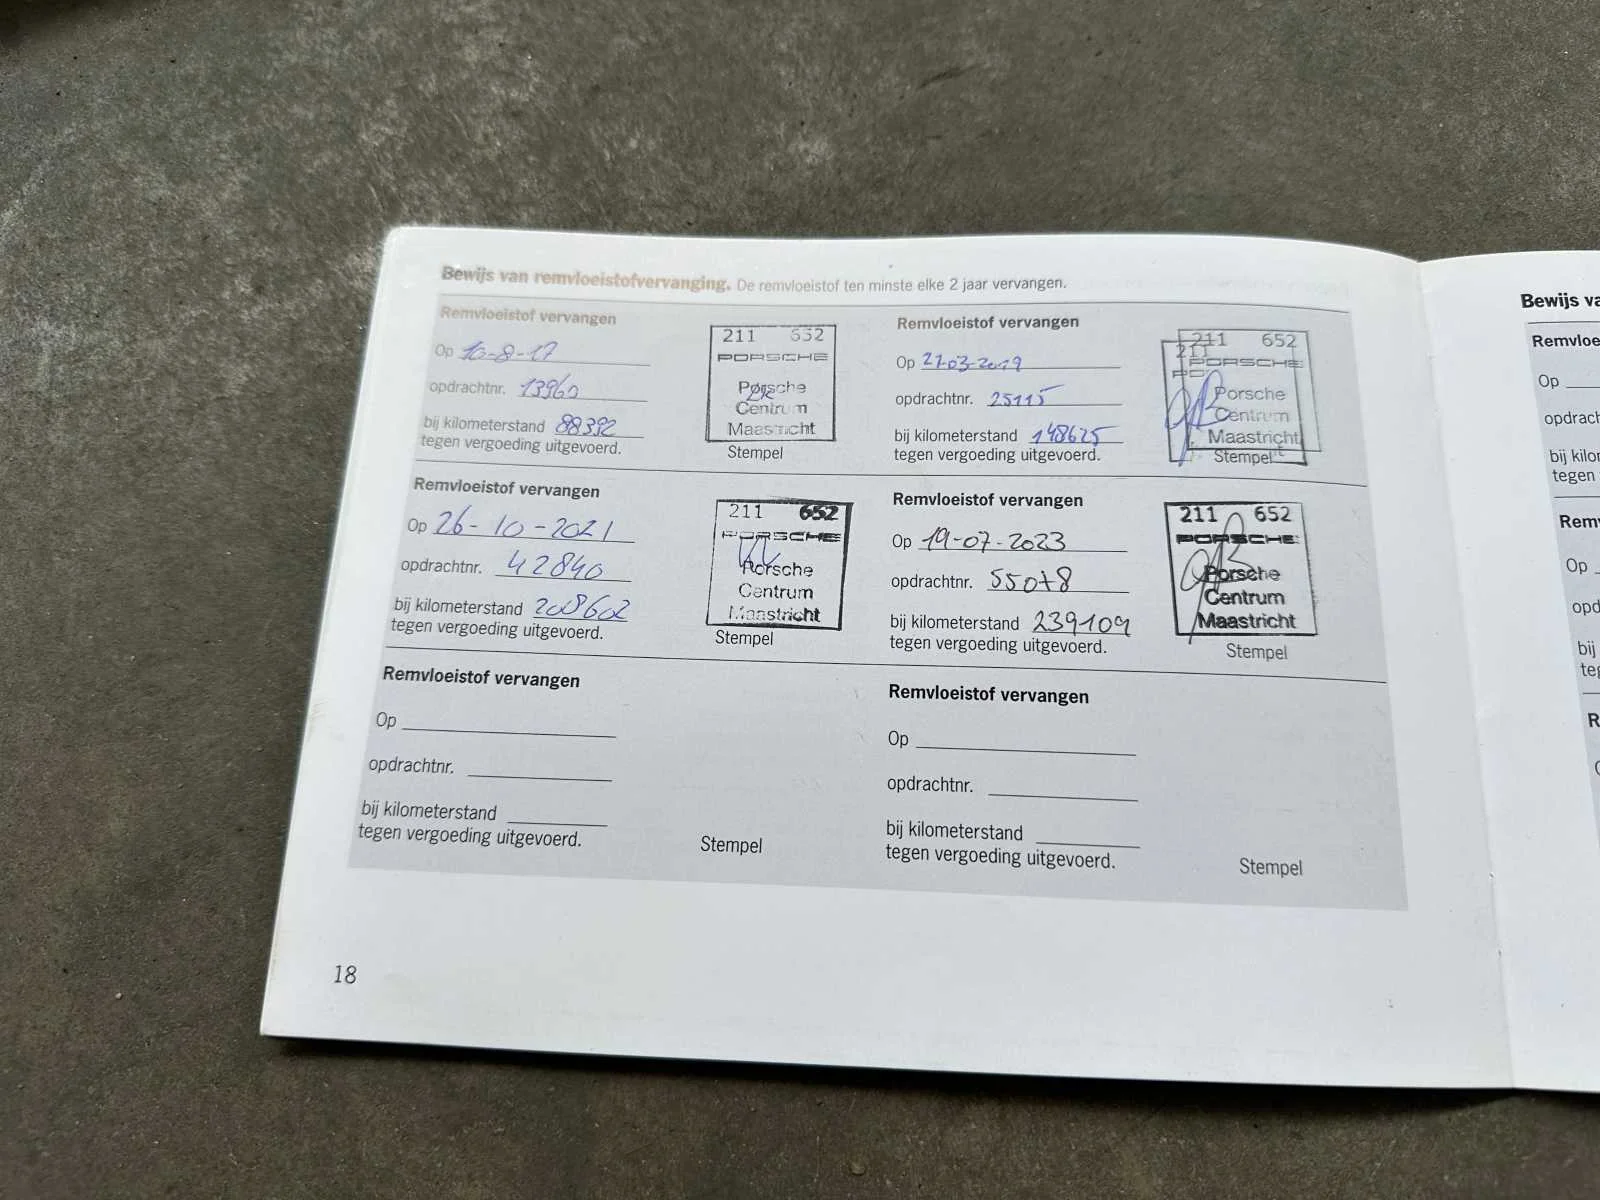 Bewijs van remvloeistofvervanging. De remvloeistof ten minste elke 2 jaar vervangen.
Remvloeistof vervangen
Op 10-8-17
opdrachtnr. 13960
bij kilometerstand 88392
tegen vergoeding uitgevoerd.
211 652
PORSCHE
Porsche
Centrum
Maastricht
Stempel
Remvloeistof vervangen
Op 21-03-2019
opdrachtnr. 25115
bij kilometerstand 148625
tegen vergoeding uitgevoerd.
211 652
211
PORSCHE
Porsche
Centrum
Maastricht
Stempel
Remvloeistof vervangen
Op 26-10-2021
opdrachtnr. 42840
bij kilometerstand 208602
tegen vergoeding uitgevoerd.
211 652
PORSCHE
Porsche
Centrum
Maastricht
Stempel
Remvloeistof vervangen
Op 19-07-2023
opdrachtnr. 55078
bij kilometerstand 239109
tegen vergoeding uitgevoerd.
211 652
PORSCHE
Porsche
Centrum
Maastricht
Stempel
Remvloeistof vervangen
Op
opdrachtnr.
bij kilometerstand
tegen vergoeding uitgevoerd.
Stempel
Remvloeistof vervangen
Op
opdrachtnr.
bij kilometerstand
tegen vergoeding uitgevoerd.
Stempel
18
Bewijs
Op
Op
bij